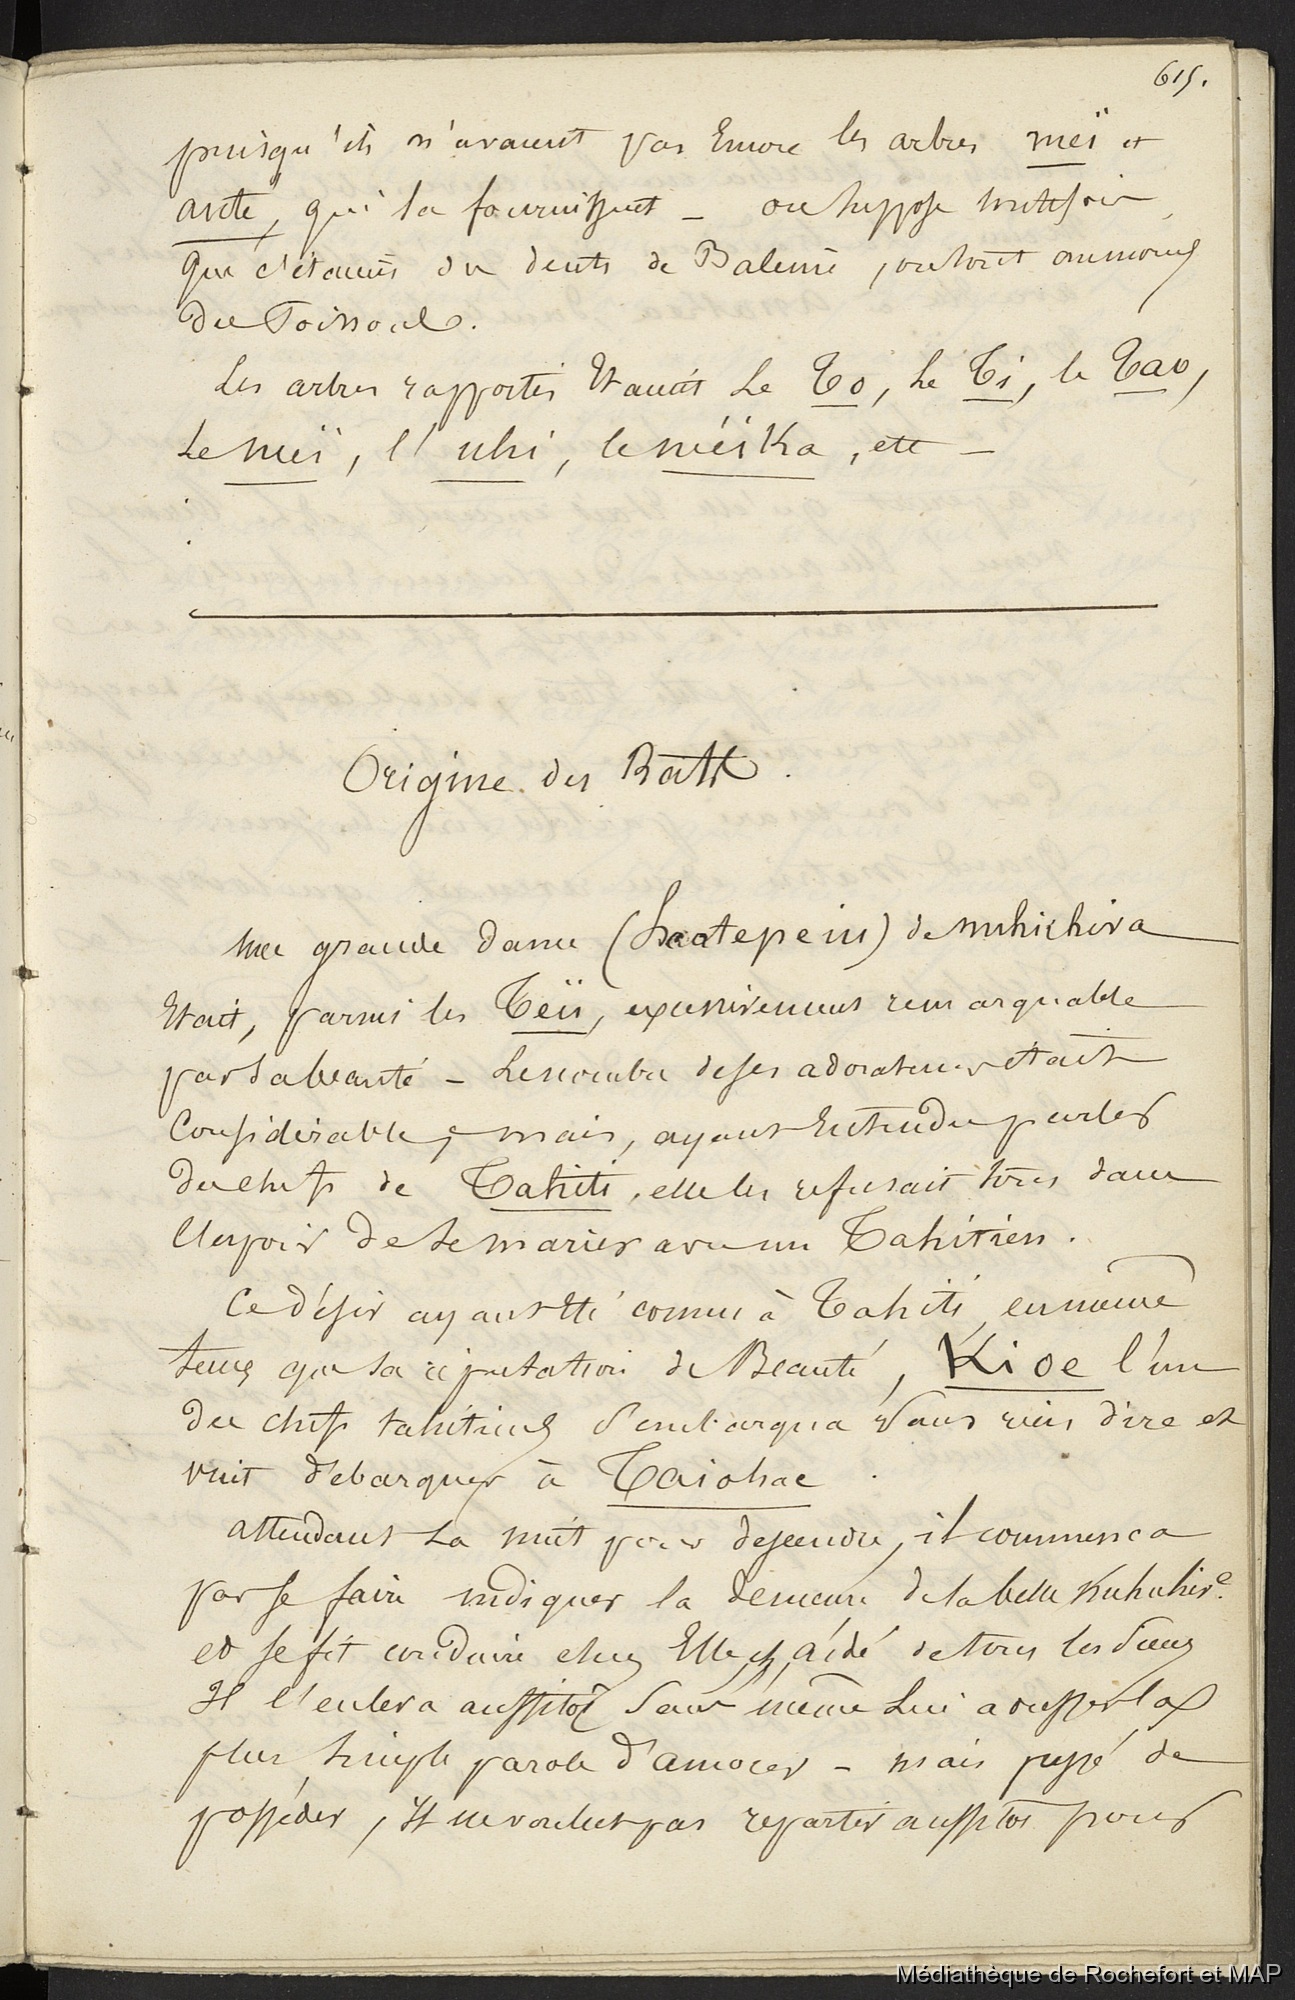 615.
puisqu'ils n'avaient pas Encore les arbres meï et
aute, qui la fournissent – on suppose toutefois
que c'étaient des dents de Baleine, ou tout au moins
de Poisson.
Les arbres rapportés Etaient Le To, Le Ti, le Tao,
Le meï, l'uhi, le méïka, etc –
Origine des Rats.
Une grande dame (Haatepeiu) de nuhichiva
Etait, parmi les Teïi, excessivement remarquable
par sa beauté – Le nombre de ses adorateurs était
Considérable, mais, ayant Entendu parler
des chefs de Tahiti, elle les refusait tous dans
l'espoir de se marier avec un Tahitien.
Ce désir ayant été connu à Tahiti, en même
tems que sa réputation de Beauté, Kioe l'un
des chefs tahitiens s'embarqua sans rien dire et
vint débarquer à Taiohae.
attendant la nuit pour descendre, il commença
par se faire indiquer la demeure de la belle
et se fit conduire chez Elle, aidé de tous les siens
Il l'enleva aussitôt sans même Lui adresser la
plus simple parole d'amour – mais pressé de
posséder, Il ne voulut pas repartir aussitôt pour
Médiathèque de Rochefort et MAP